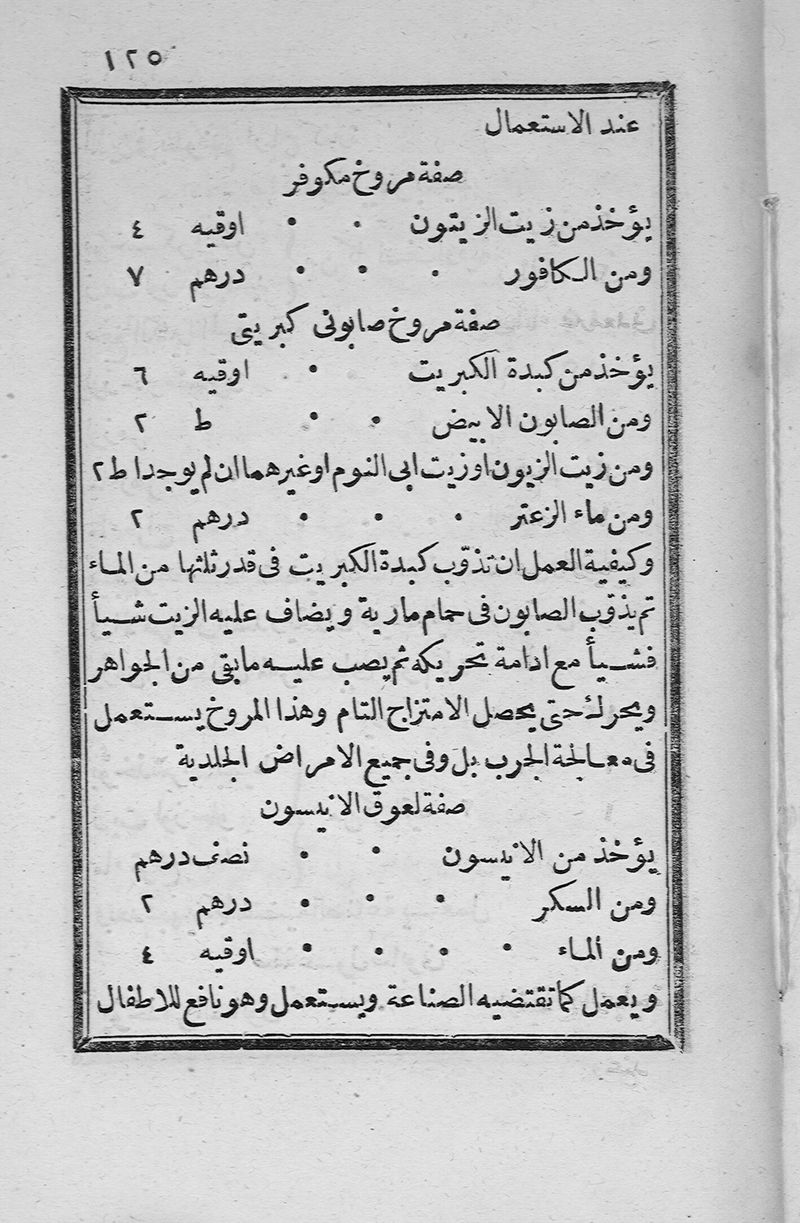 ١٢٥
عند الاستعمال
صفة مروخ مكوفر
يؤخذ من زيت الزيتون • • اوقيه ٤
ومن الكافور • • • درهم ٧
صفة مروخ صابونى كبريتى
يؤخذ من كبدة الكبريت • اوقيه ٦
ومن الصابون الابيض • • ط ٢
ومن زيت الزيون او زيت ابى النوم او غيرهما ان لم يوجدا ط ٢
ومن ماء الزعتر • • • درهم ٢
وكيفية العمل ان تذوّب كبدة الكبريت فى قدر ثلثها من الماء
ثم يذوّب الصابون فى حمام مارية ويضاف عليه الزيت شيأ
فشيأ مع ادامة تحريكه ثم يصب عليه مابقى من الجواهر
ويحرك حتى يحصل الامتزاج التام وهذا المروخ يستعمل
فى معالجة الجرب بل وفى جميع الامراض الجلدية
صفة لعوق الانيسون
يؤخذ من الانيسون • • نصف درهم
ومن السكر • • • درهم ٢
ومن الماء • • • • اوقيه ٤
ويعمل كما تقتضيه الصناعة ويستعمل وهو نافع للاطفال